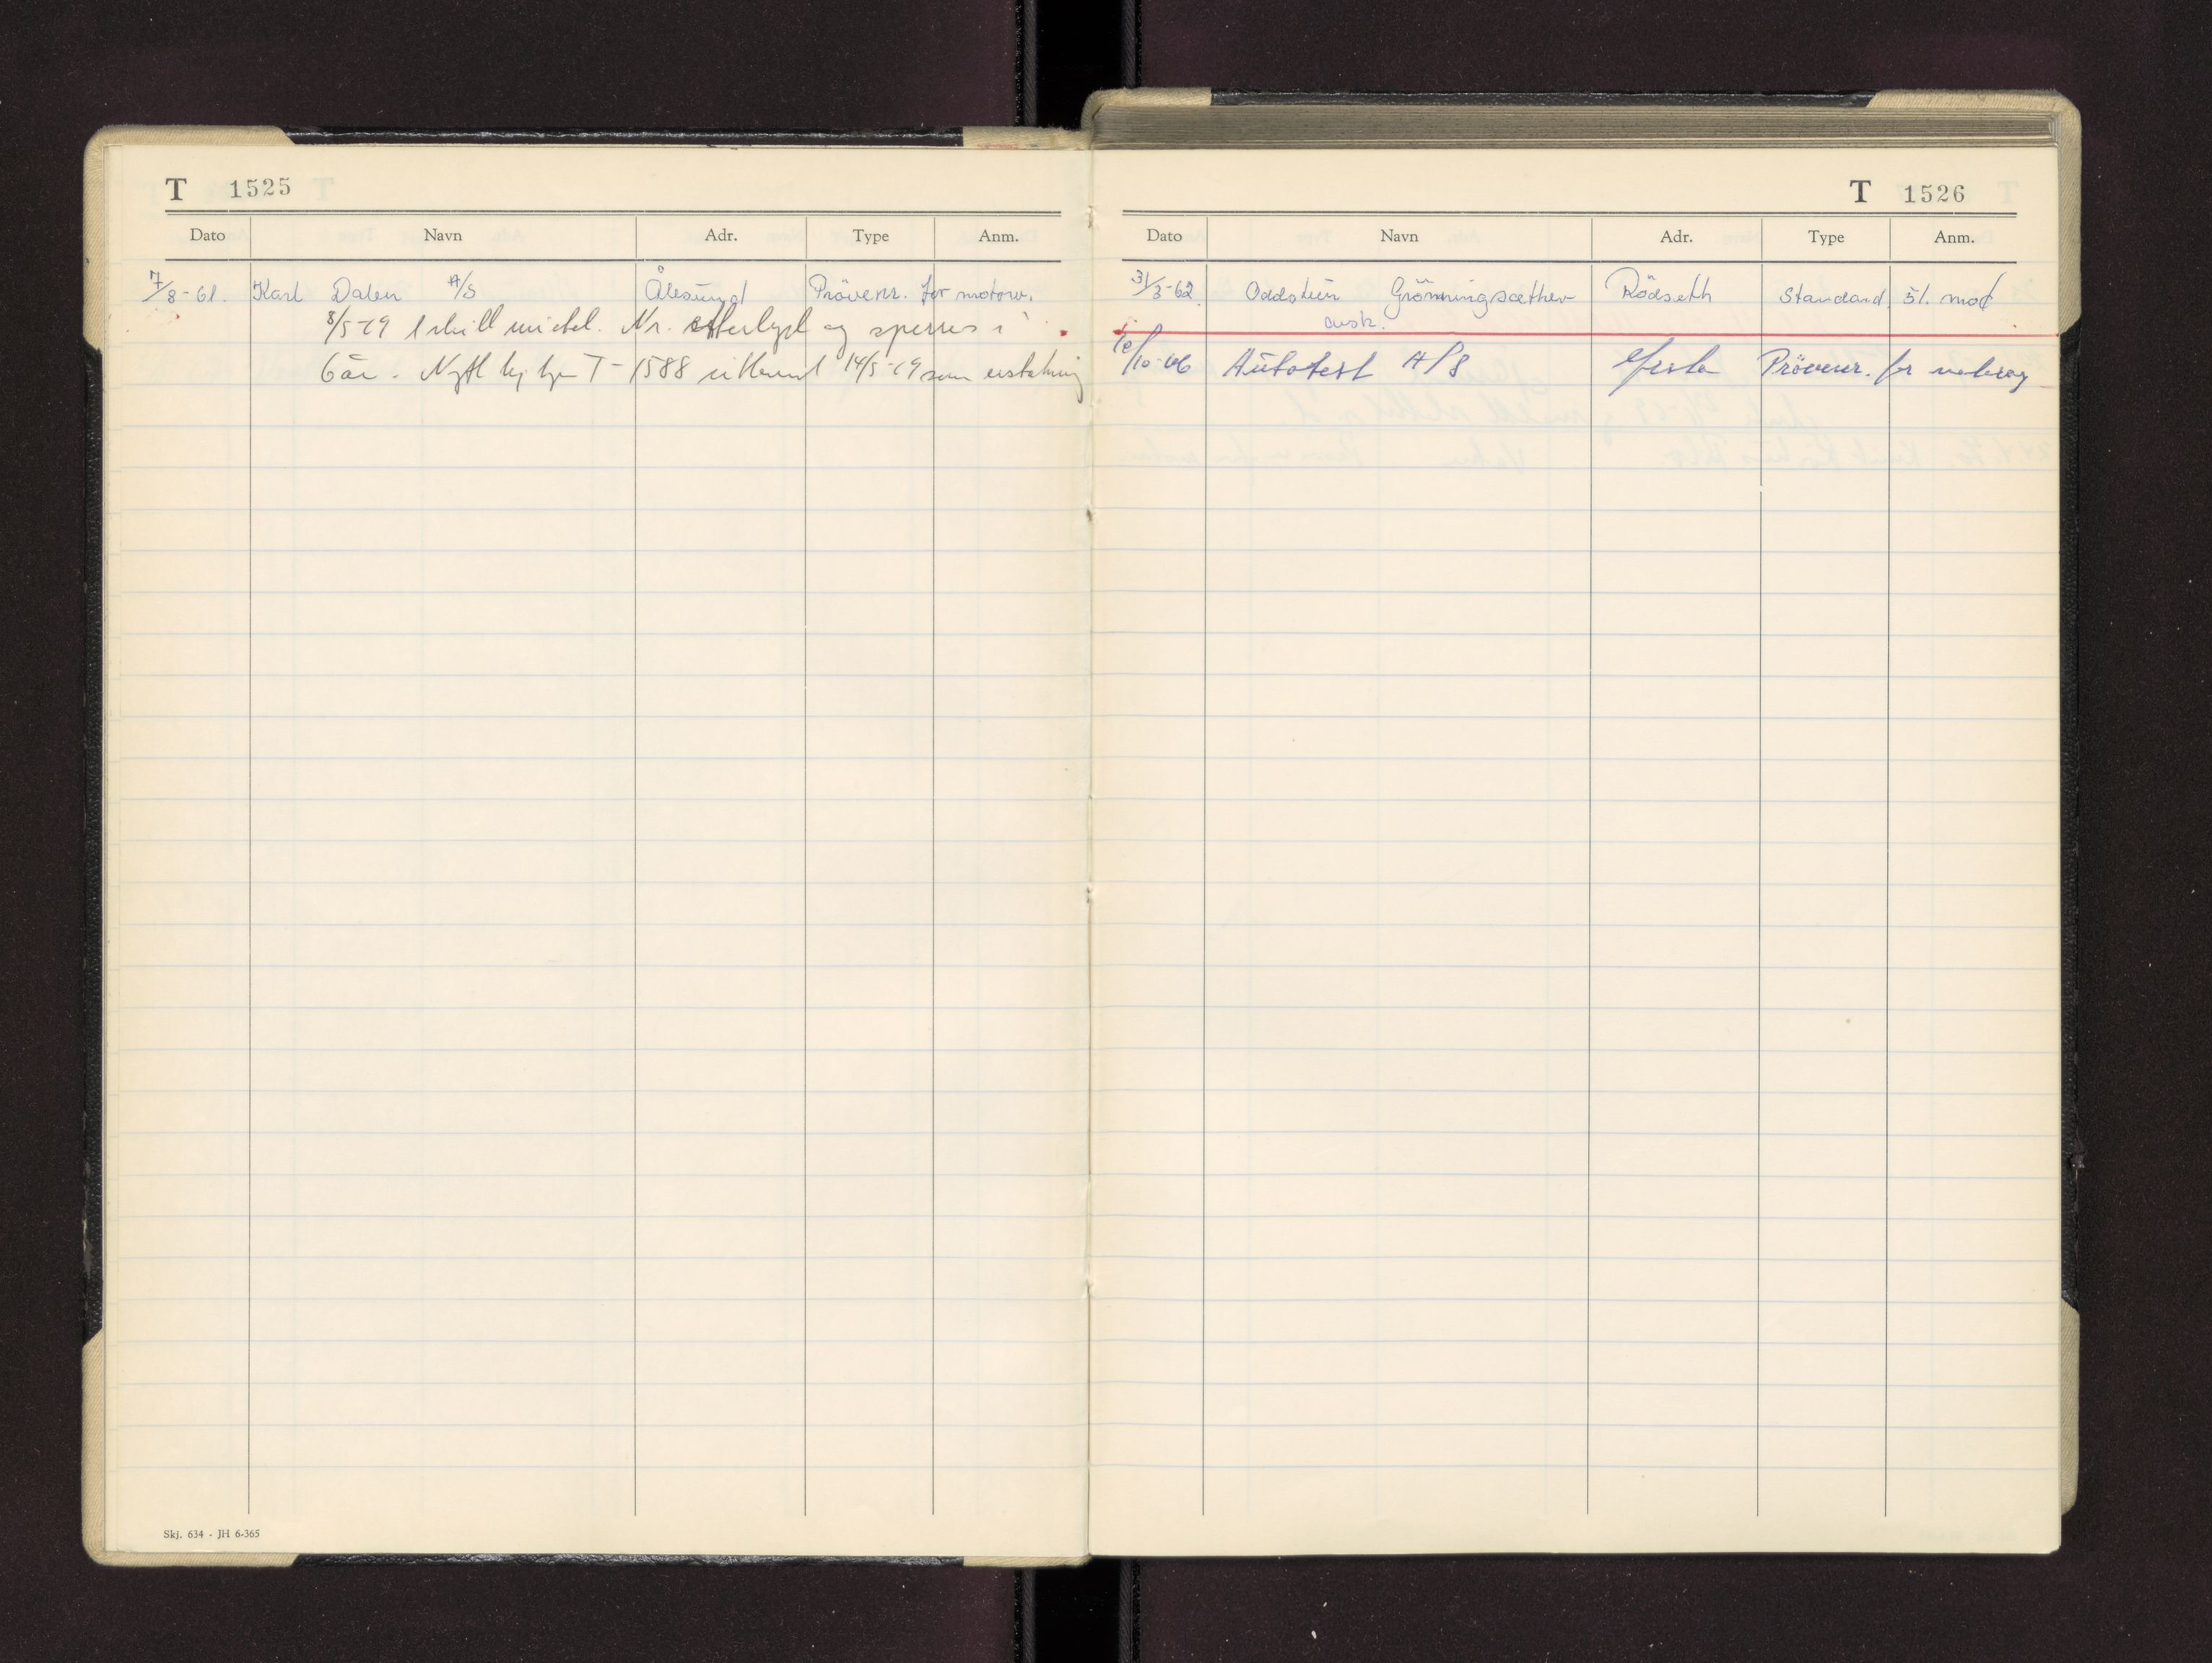 T 1525
Dato Navn Adr. Type Anm.
7/8-61. Karl Dalen A/S Ålesund Prövenr. for motorv.
8/5-79 1 skilt mistet. Nr. etterlyst og sperres i
6 år. Nytt kj. T-1588 utlevert 14/5-79 som erstatning
Skj. 634 - JH 6-365
T 1526
Dato Navn Adr. Type Anm.
31/3-62 Oddstein Grönningsæther Rödseth Standard 51. mod
avsk.
10/10-66 Autotest A/S Prövenr. for motorvog